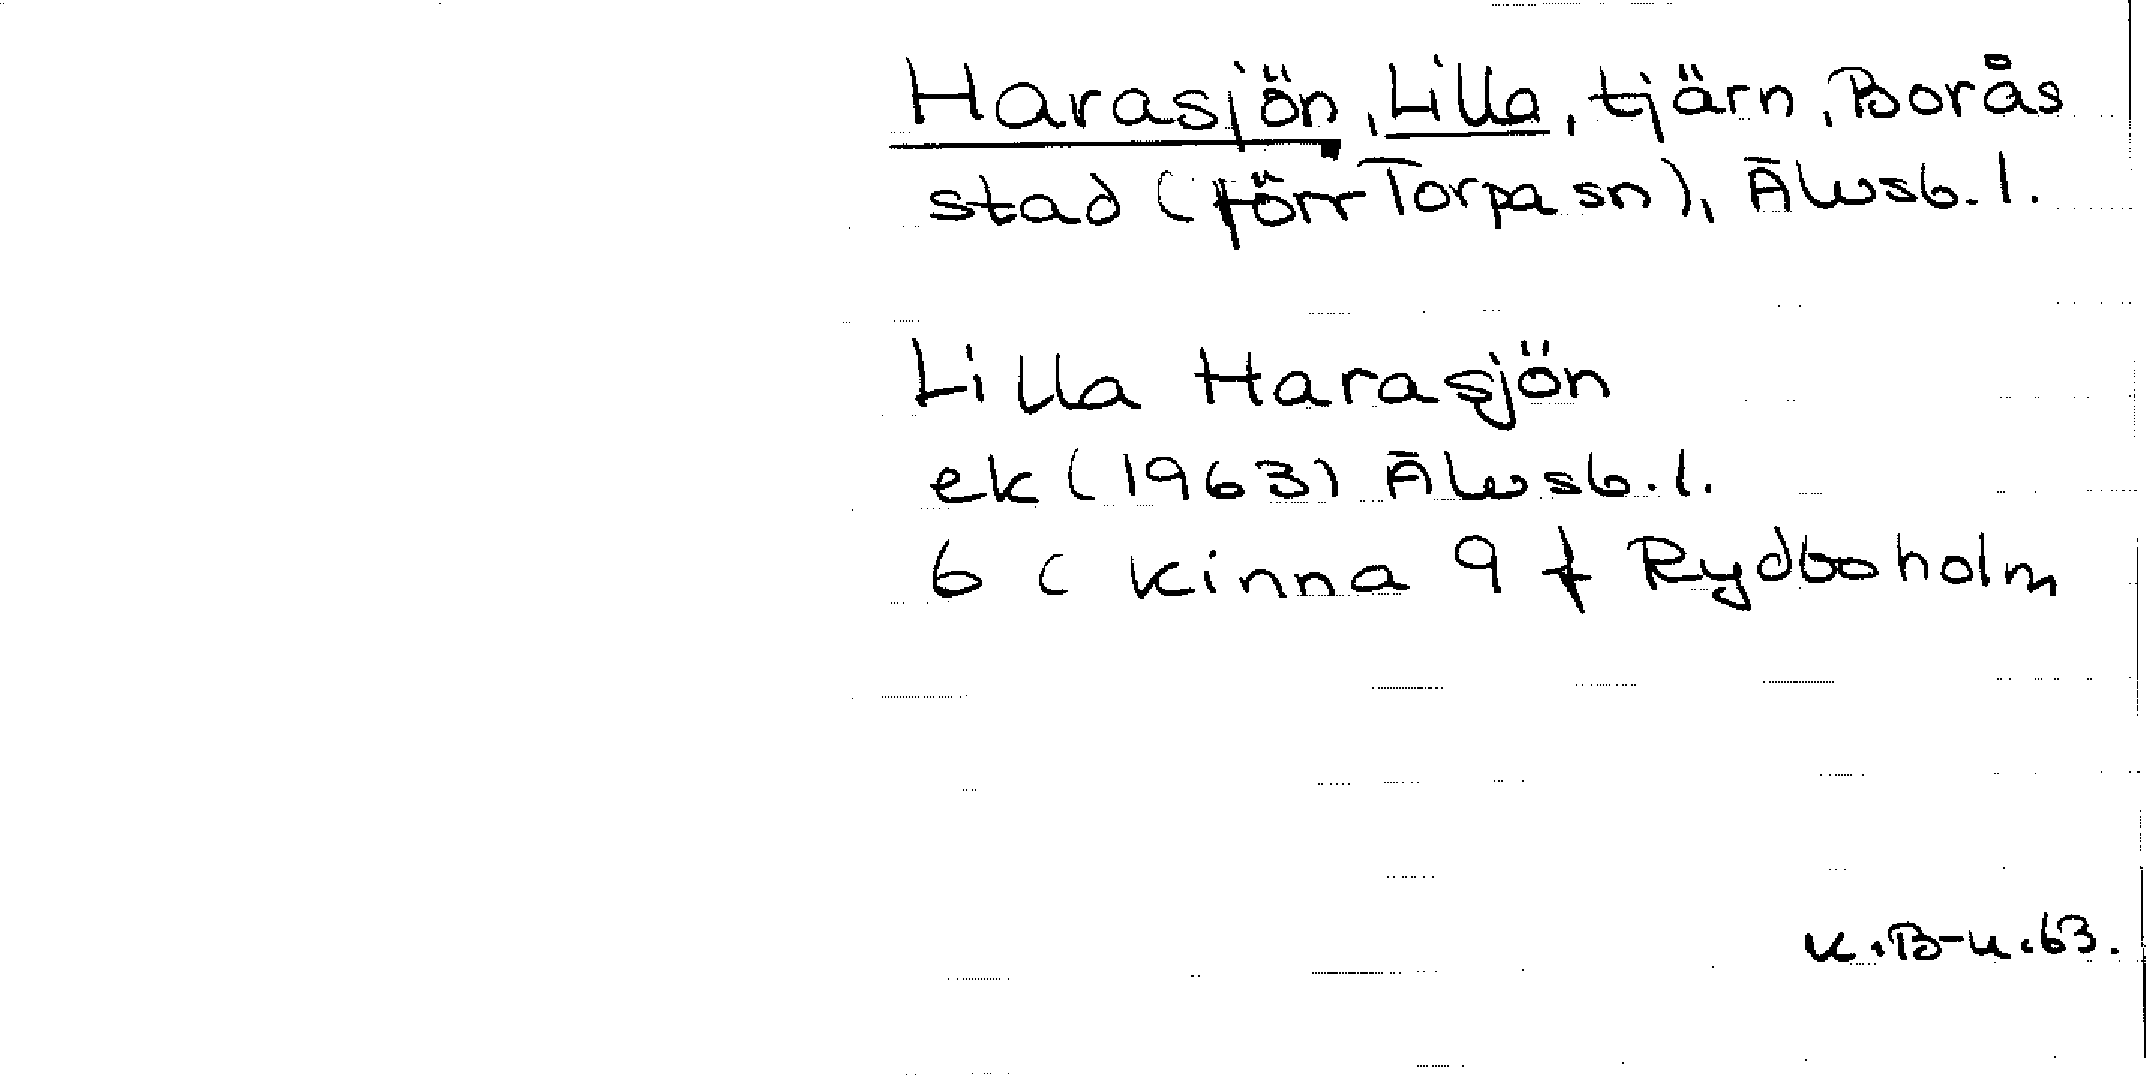 Harasjön, Lilla, tjärn, Borås
stad (förr Torpa sn), Älvsb. l.
Lilla Harasjön
ek (1963) Älvsb. l.
6 C Kinna 9 f Rydboholm
K.B-u.63.